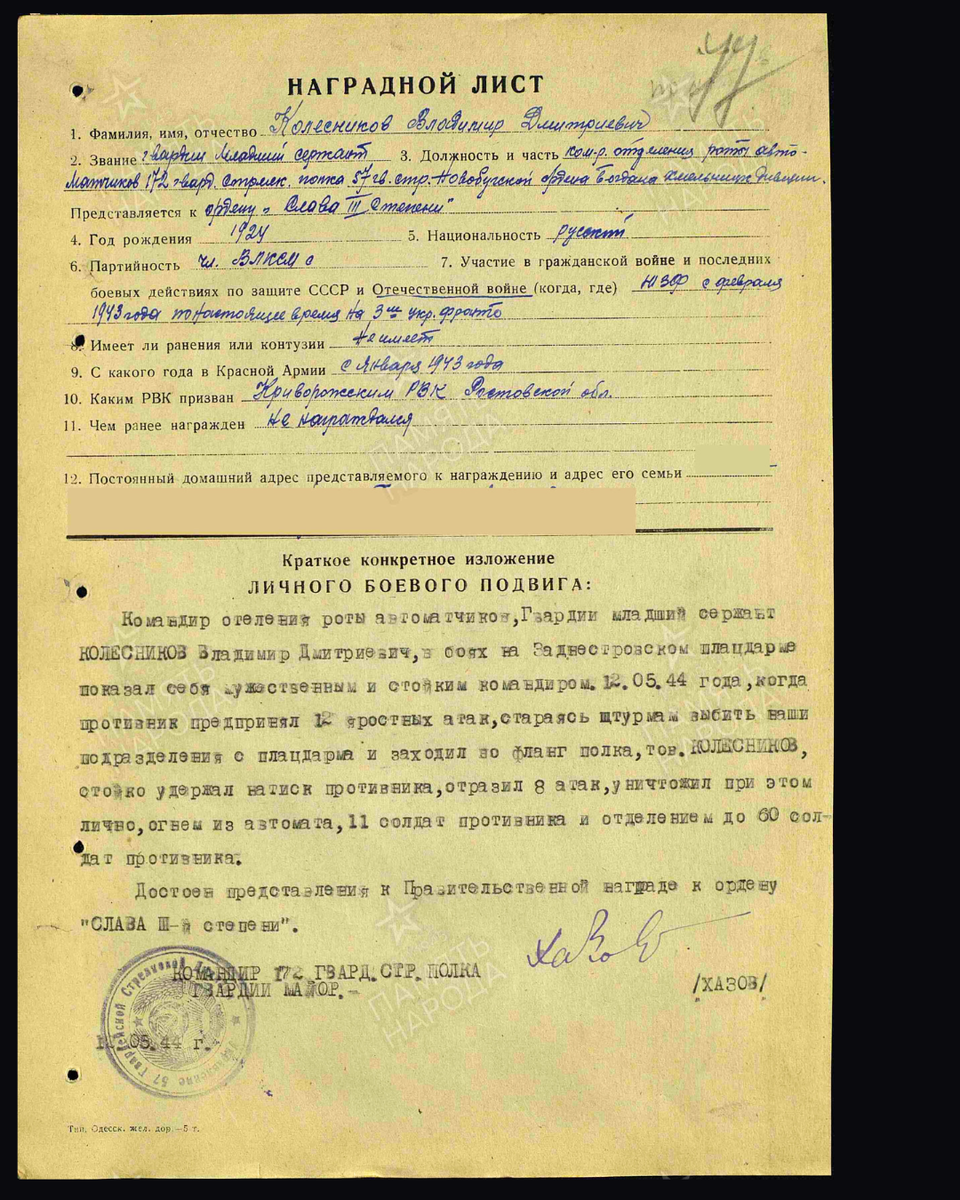 НАГРАДНОЙ ЛИСТ
1. Фамилия, имя, отчество Колесников Владимир Дмитриевич
2. Звание гвардии младший сержант 3. Должность и часть ком-р. отделения роты авто-
матчиков 172 гвард. стрелк. полка 57 гв. стр. Новобугской ордена Богдана Хмельницк дивизии.
Представляется к ордену „Слава III степени"
4. Год рождения 1924 5. Национальность русский
6. Партийность чл. ВЛКСМ с 7. Участие в гражданской войне и последних
боевых действиях по защите СССР и Отечественной войне (когда, где) ЮЗФ с февраля
1943 года по настоящее время на 3ем укр. фронте
8. Имеет ли ранения или контузии Не имеет
9. С какого года в Красной Армии с января 1943 года
10. Каким РВК призван Криворожским РВК Ростовской обл.
11. Чем ранее награжден не награждался
12. Постоянный домашний адрес представляемого к награждению и адрес его семьи
Краткое конкретное изложение
ЛИЧНОГО БОЕВОГО ПОДВИГА:
Командир отеления роты автоматчиков,Гвардии младший сержант
КОЛЕСНИКОВ Владимир Дмитриевич,в боях на Заднестровском плацдарме
показал себя мужественным и стойким командиром.12.05.44 года,когда
противник предпринял 12 яростных атак,стараясь штурмам выбить наши
подразделения с плацдарма и заходил во фланг полка,тов.КОЛЕСНИКОВ,
стойко удержал натиск противника,отразил 8 атак,уничтожил при этом
лично,огнем из автомата,11 солдат противника и отделением до 60 сол-
дат противника.
Достоен представления к Правительственной награде к ордену
"СЛАВА Ш-й степени".
Хазов
КОМАНДИР 172 ГВАРД.СТР.ПОЛКА
ГВАРДИИ МАЙОР.-
/ХАЗОВ/
05.44 г.
57 Гвардейской Стрелковой
Тип. Одесск. жел. дор.—5 т.
ПАМЯТЬ НАРОДА